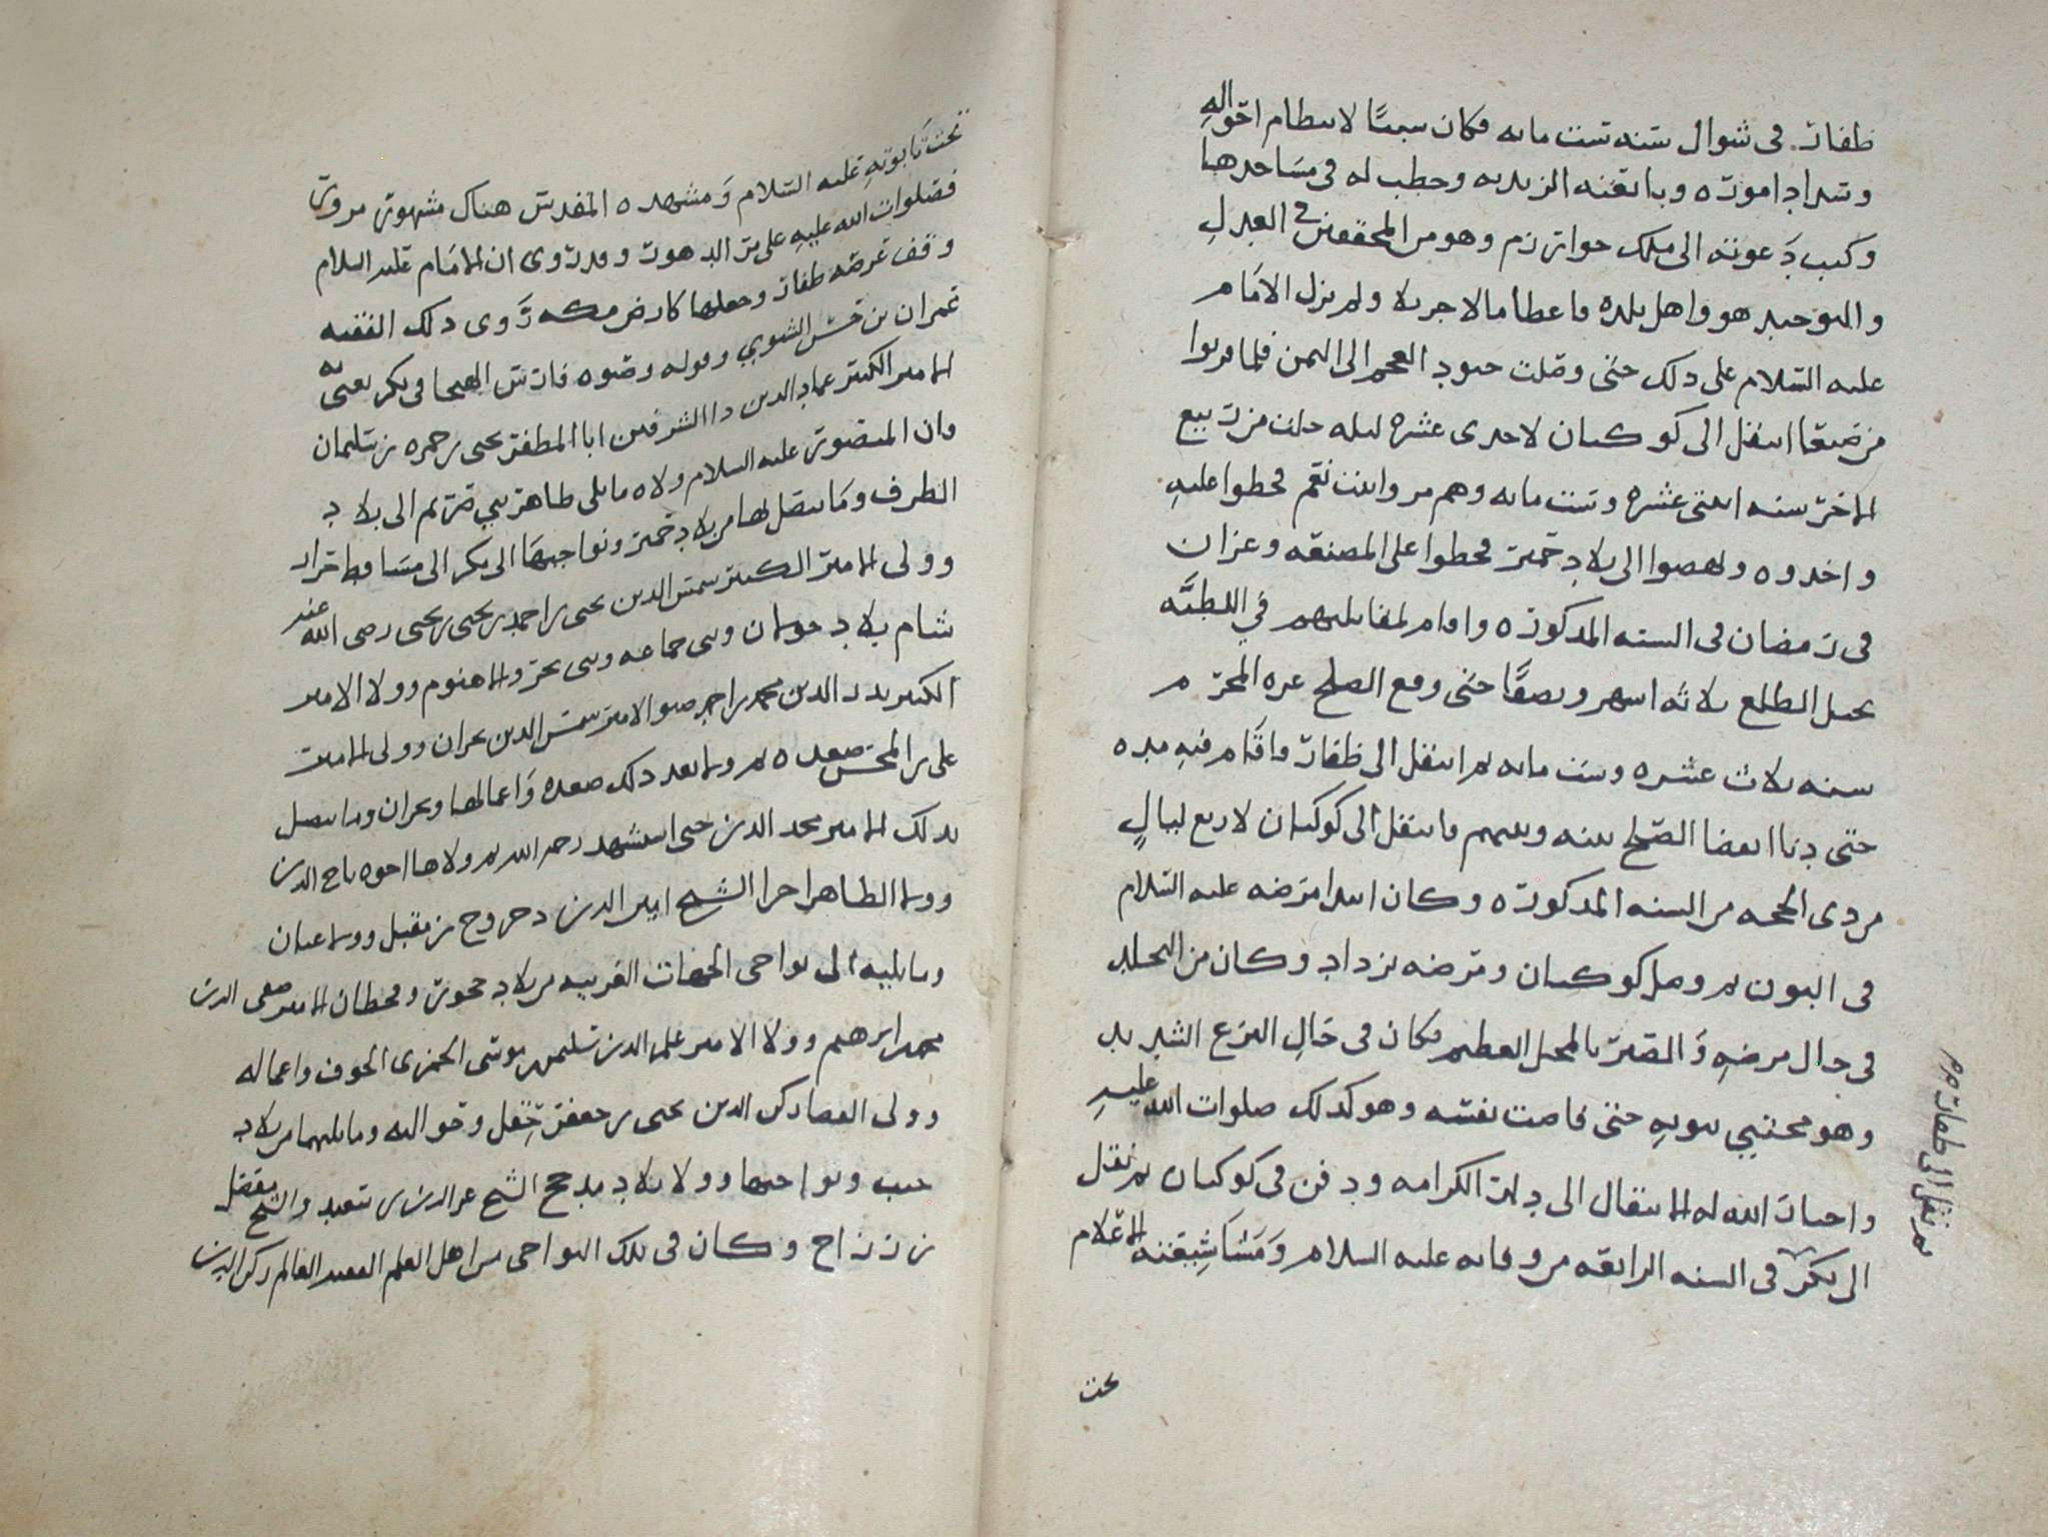 ظفار. فى شوال سنه ست مايه فكان سببًا لانتظام احواله
وسداد اموره وبايعته الزيديه وخطب له فى مساجدها
وكتب دعوته الى ملك خوارزم وهو من المحققين فى العدل
والتوحيد هو واهل بلده فاعطا مالا جزيلا ولم يزل الامام
عليه السلام على ذلك حتى وصلت جنود العجم الى اليمن فلما قربوا
من صنعا انتقل الى كوكبان لاحدى عشره ليله خلت من ربيع
الاخر سنه اثنتى عشره وست مايه وهم مروا بنت نعم فحطوا عليه
واخدوه ونهضوا الى بلاد حمير فحطوا على المصنعه وعزان
فى رمضان فى السنه المدكوره واقام لمقابلتهم في
بجبل الطلع ثلاثه اشهر ونصفًا حتى وقع الصلح غره المحرم
سنه ثلاث عشره وست مايه ثم انتقل الى ظفار واقام فيه مده
حتى دنا انقضا الصلح بينه وبينهم فانتقل الى كوكبان لاربع ليالٍ
من دى الحجه من السنه المدكوره وكان ابتدا مرضه عليه السلام
فى البون ثم وصل كوكبان ومرضه يزداد وكان من التجلد
فى حال مرضهِ والصبر بالمحل العظيم فكان فى حالِ النزع الشديد
وهو محتبي بثوبهِ حتى فاضت نفسه وهو كدلك صلوات الله عليهِ
واختار الله له الانتقال الى دار الكرامه ودفن فى كوكبان ثم نقل
الى بكر فى السنه الرابعه من وفاته عليه السلام ومشا شيعته الاعلام
تحت
ثم نقل الى ظفار
تحت تابوتهِ عليه السلام ومشهده المقدس هناك مشهور مزور
فصلوات الله عليهِ على مر الدهور وقد روى ان الامام عليه السلام
وقف عرصه ظفار وجعلها كارض مكه روى دلك الفقيه
عمران بن حسن الشتوي وقوله وصنوه فارس الهيجا فى بكر يعنى به
الامير الكبير عماد الدين دا الشرفين ابا المظفر يحيى بن حمزه بن سليمان
وان المنصور عليه السلام ولاه ما يلى طاهر بني صريم الى بلاد
الظرف وما يتصل بها من بلاد حمير ونواحيها الى بكر الى مساقط حراز
وولى الامير الكبير شمس الدين يحيى بن احمد بن يحيى بن يحيى رضى الله عنه
شام بلاد خولان وبنى جماعه وبنى بحر والاهنوم وولا الامير
الكبير بدر الدين محمد بن احمد صنو الامير شمس الدين نجران وولى الامير
على بن المحسن صعده ثم ولا بعد دلك صعده واعمالها ونجران وما يتصل
بدلك الامير مجد الدين حتى استشهد رحمه الله ثم ولاها اخوه تاج الدين
وولا الظاهر احرا الشيخ دحروج بن مقبل وولا عيان
وما يليه الى نواحى الجهات الغربيه من بلاد حجور وقحطان الامير صفى الدين
محمد ابن ابرهيم وولا الامير علم الدين سليمن بن موسى الحمزى الجوف واعماله
وولى القصا ركن الدين يحيى بن جعفر وحواليه وما يليهما من بلاد
جنب ونواحيها وولا بلاد مدحج الشيخ عز الدين بن سعيد والشيخ مفضل
بن رزاح وكان فى تلك النواحى من اهل العلم الفقيه العالم ركن الدين